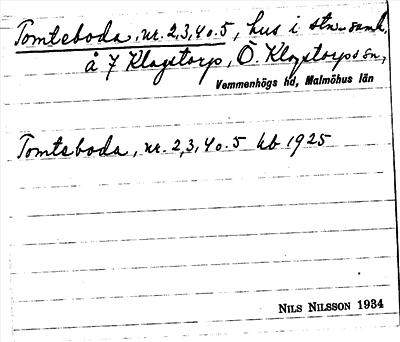 Tomteboda, nr. 2,3,4 o. 5, hus i stn-samh.
å 7 Klagstorp, Ö. Klagstorps sn,
Vemmenhögs hd, Malmöhus län
Tomteboda, nr. 2,3,4 o. 5 kb 1925
NILS NILSSON 1934